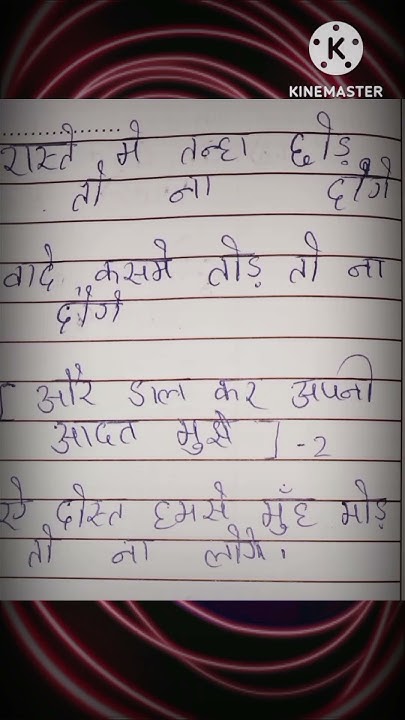 KINEMASTER
रास्ते मे तन्हा छोड़
तो ना दोगे
वादे कसमे तोड़ तो ना
दोगे
[ और डाल कर अपनी
आदत मुझे ] -2
ऐ दोस्त हमसे मुँह मोड़
तो ना लोगे।